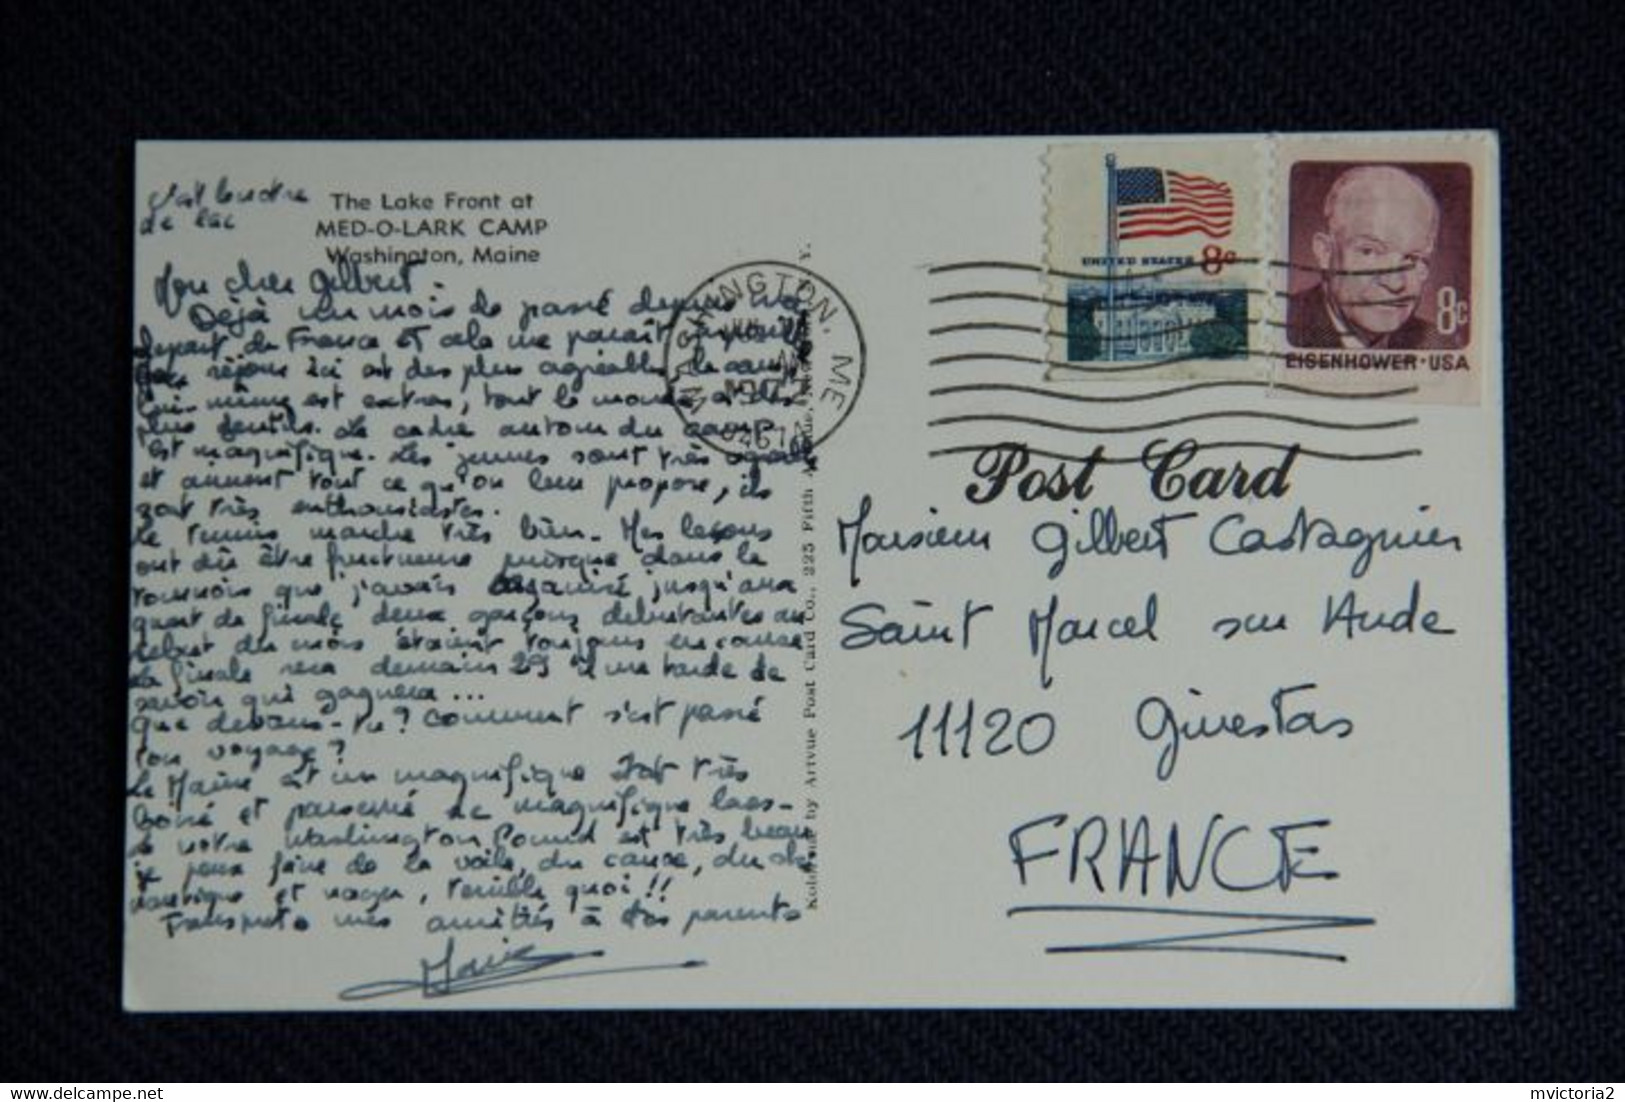 The Lake Front at
MED-O-LARK CAMP
Washington, Maine
de lac
Mon cher Gilbert.
Déjà un mois de passé depuis
depart de France et cela me paraît
séjour ici est des plus agréables, le camp
lui-même est extras, tout le monde
plus gentils. Le cadre autour du camp
est magnifique. Les jeunes sont très
et aiment tout ce qu'on leur propose, ils
sont très enthousiastes.
Le tennis marche très bien. Mes leçons
ont dû être fructueuse puisque dans le
tournois que j'avais organisé jusqu'aux
quart de finale deux garçons debutantes au
debut du mois étaient toujours en course
La finale sera demain 29 il me tarde de
savoir qui gagnera ...
Que deviens-tu? Comment s'est passé
ton voyage?
Le Maine est un magnifique Etat très
boisé et parsemé de magnifique lacs-
notre Washington Pound est très beau
je peux faire de la voile, du canoe, du ski
nautique et nager, terrible quoi!!
Transmets mes amitiés à tes parents
WASHINGTON, ME
JUL
1972
Kolor by Artvue Post Card Co., 225 Fifth Avenue, Y.
UNITED STATES 8c
8c
EISENHOWER · USA
Post Card
Monsieur Gilbert Castagnier
Saint Marcel sur Aude
11120 Ginestas
FRANCE
mvictoria2